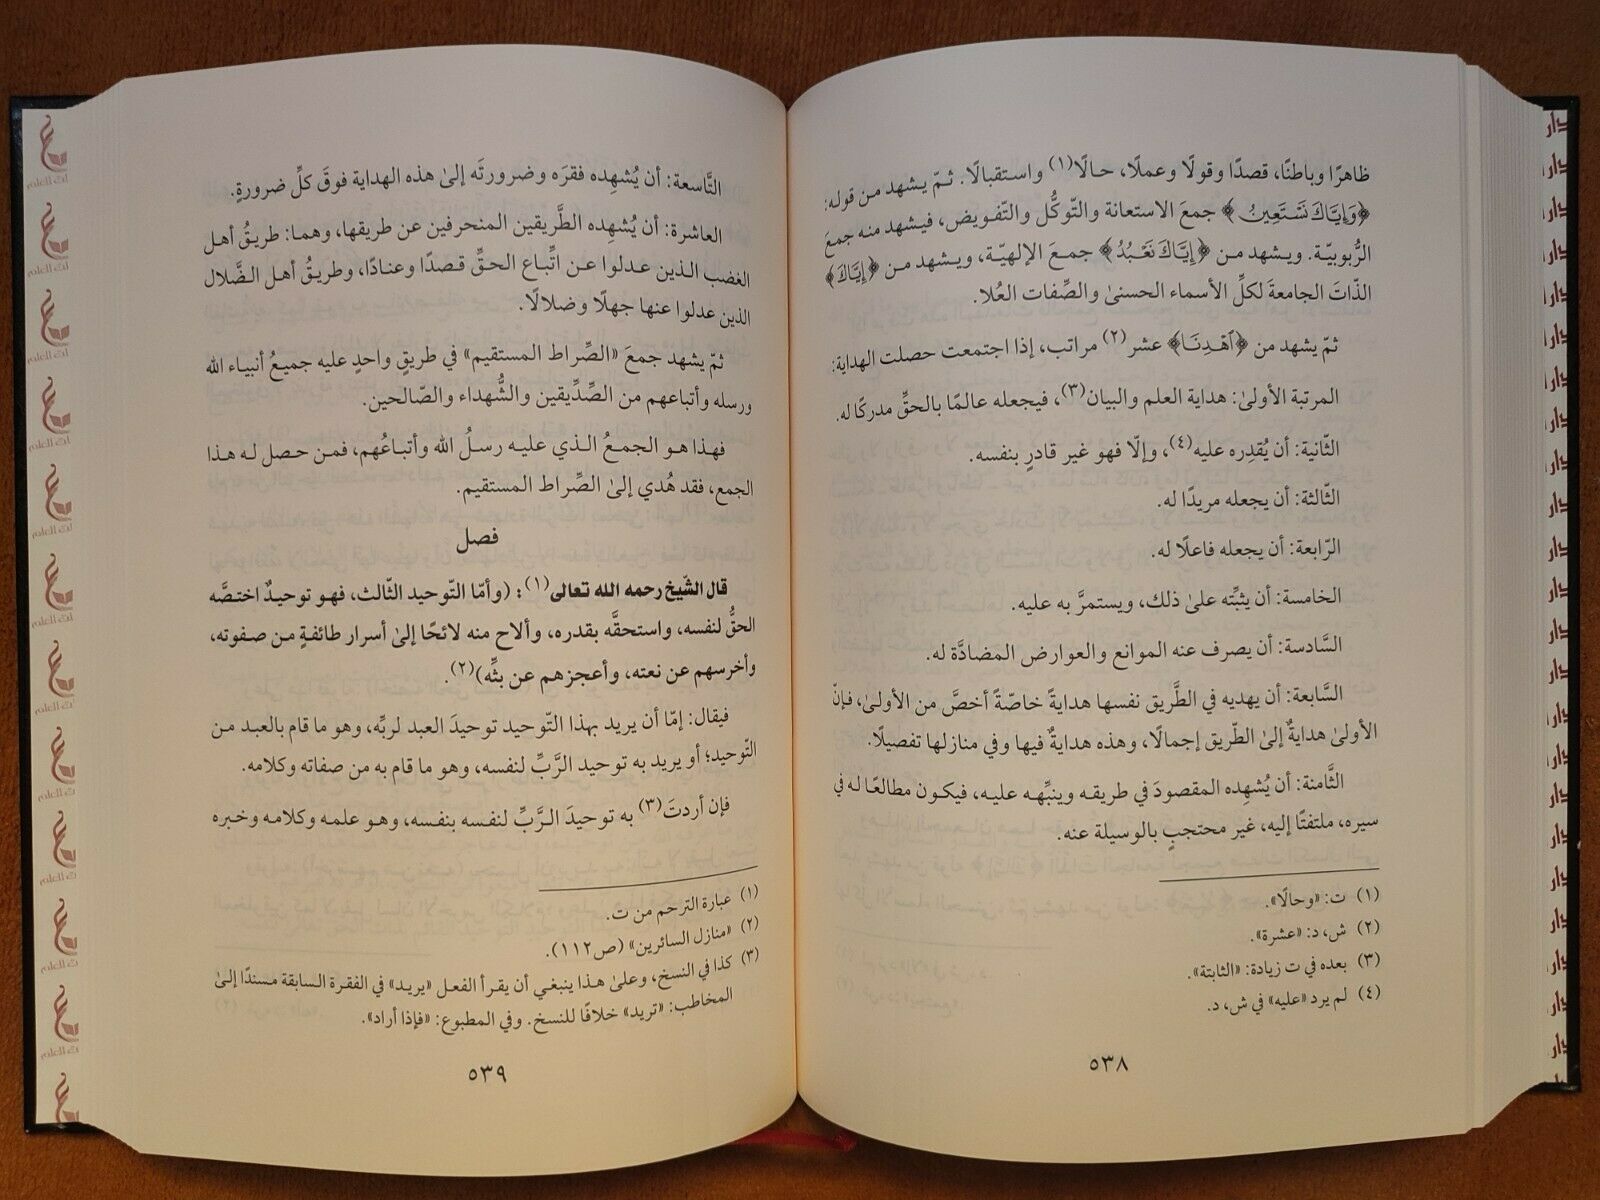 ظاهرًا وباطنًا، قصدًا وقولًا وعملًا، حالًا(١) واستقبالًا. ثمّ يشهد من قوله:
﴿وَإِيَّاكَ نَسْتَعِينُ﴾ جمعَ الاستعانة والتّوكُّل والتّفويض، فيشهد منه جمعَ
الرُّبوبيّة. ويشهد من ﴿إِيَّاكَ نَعْبُدُ﴾ جمعَ الإلهيّة، ويشهد من ﴿إِيَّاكَ﴾
الذّاتَ الجامعةَ لكلِّ الأسماء الحسنىٰ والصِّفات العُلا.
ثمّ يشهد من ﴿ٱهْدِنَا﴾ عشر(٢) مراتب، إذا اجتمعت حصلت الهداية:
المرتبة الأولىٰ: هداية العلم والبيان(٣)، فيجعله عالمًا بالحقِّ مدركًا له.
الثّانية: أن يُقدِره عليه(٤)، وإلّا فهو غير قادرٍ بنفسه.
الثّالثة: أن يجعله مريدًا له.
الرّابعة: أن يجعله فاعلًا له.
الخامسة: أن يثبِّته علىٰ ذلك، ويستمرَّ به عليه.
السَّادسة: أن يصرف عنه الموانع والعوارض المضادَّة له.
السَّابعة: أن يهديه في الطَّريق نفسها هدايةً خاصّةً أخصَّ من الأولىٰ، فإنّ
الأولىٰ هدايةٌ إلىٰ الطّريق إجمالًا، وهذه هدايةٌ فيها وفي منازلها تفصيلًا.
الثَّامنة: أن يُشهِده المقصودَ في طريقه وينبِّهه عليه، فيكون مطالعًا له في
سيره، ملتفتًا إليه، غير محتجبٍ بالوسيلة عنه.
(١) ت: «وحالًا».
(٢) ش، د: «عشرة».
(٣) بعده في ت زيادة: «الثابتة».
(٤) لم يرد «عليه» في ش، د.
٥٣٨
التَّاسعة: أن يُشهِده فقرَه وضرورتَه إلىٰ هذه الهداية فوقَ كلِّ ضرورةٍ.
العاشرة: أن يُشهِده الطَّريقين المنحرفين عن طريقها، وهما: طريقُ أهل
الغضب الذين عدلوا عن اتِّباع الحقِّ قصدًا وعنادًا، وطريقُ أهل الضَّلال
الذين عدلوا عنها جهلًا وضلالًا.
ثمّ يشهد جمعَ «الصِّراط المستقيم» في طريقٍ واحدٍ عليه جميعُ أنبياء الله
ورسله وأتباعهم من الصِّدِّيقين والشُّهداء والصّالحين.
فهذا هو الجمعُ الذي عليه رسلُ الله وأتباعُهم، فمن حصل له هذا
الجمع، فقد هُدي إلىٰ الصِّراط المستقيم.
فصل
قال الشّيخ رحمه الله تعالى(١): (وأمّا التّوحيد الثّالث، فهو توحيدٌ اختصَّه
الحقُّ لنفسه، واستحقَّه بقدره، وألاح منه لائحًا إلىٰ أسرار طائفةٍ من صفوته،
وأخرسهم عن نعته، وأعجزهم عن بثِّه)(٢).
فيقال: إمّا أن يريد بهذا التّوحيد توحيدَ العبد لربِّه، وهو ما قام بالعبد من
التّوحيد؛ أو يريد به توحيد الرَّبِّ لنفسه، وهو ما قام به من صفاته وكلامه.
فإن أردتَ(٣) به توحيدَ الرَّبِّ لنفسه بنفسه، وهو علمه وكلامه وخبره
(١) عبارة الترحم من ت.
(٢) «منازل السائرين» (ص١١٢).
(٣) كذا في النسخ، وعلىٰ هذا ينبغي أن يقرأ الفعل «يريد» في الفقرة السابقة مسندًا إلىٰ
المخاطب: «تريد» خلافًا للنسخ. وفي المطبوع: «فإذا أراد».
٥٣٩